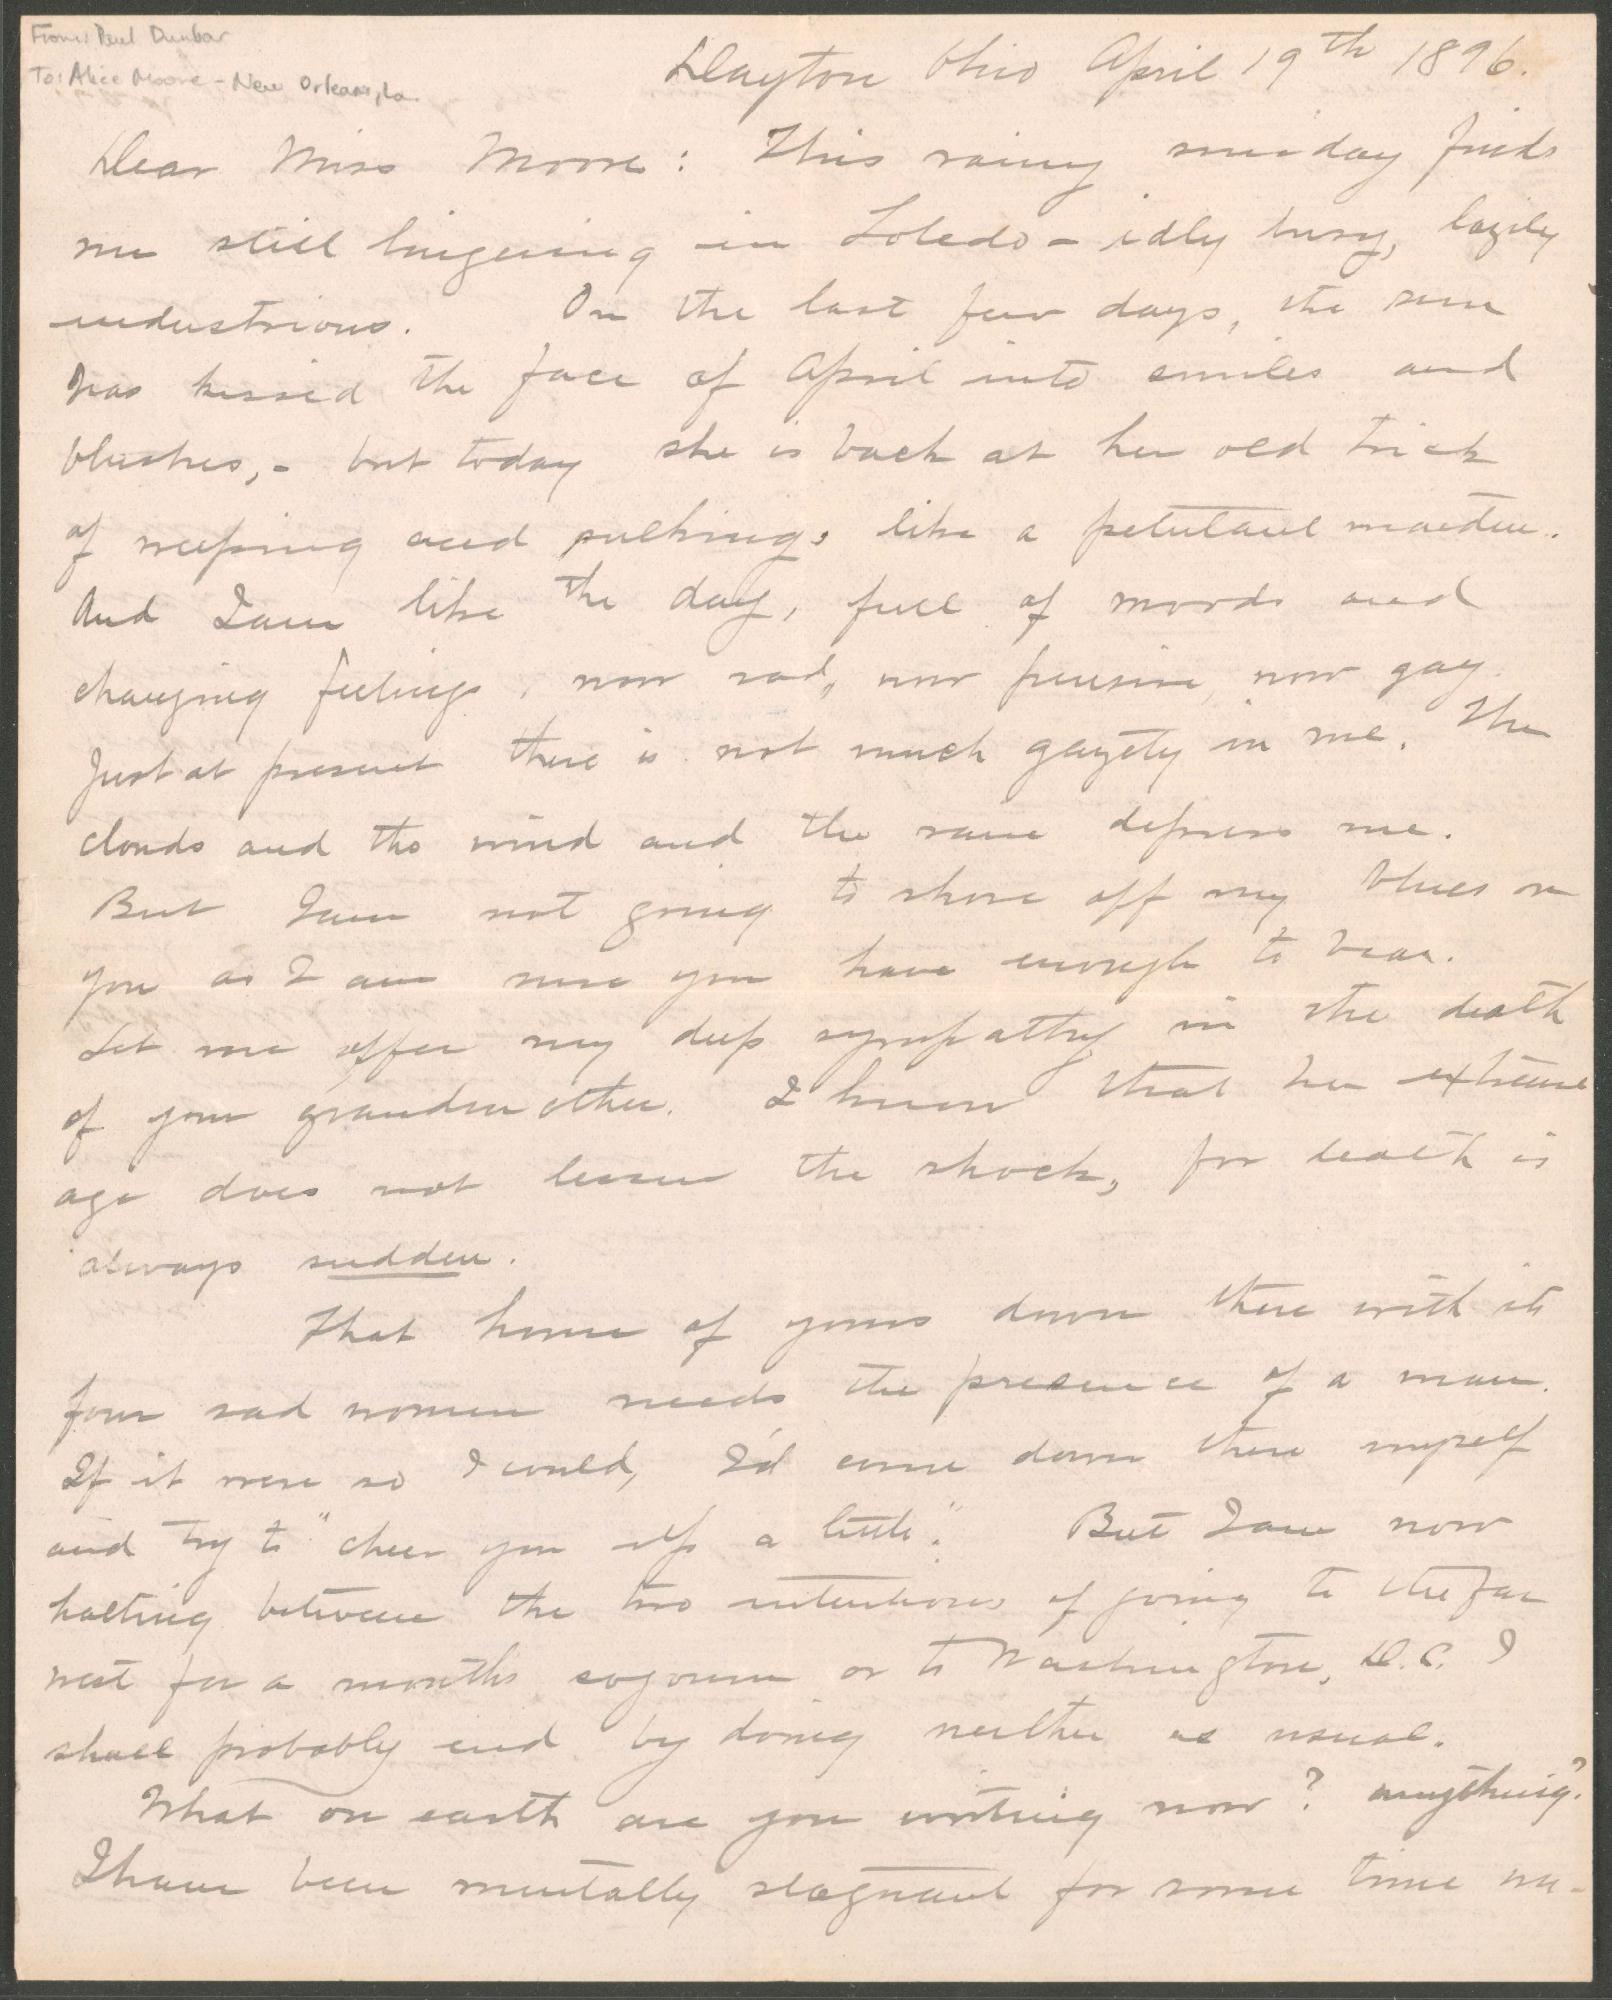 From: Paul Dunbar
To: Alice Moore - New Orleans, La.
Dayton Ohio April 19th 1896.
Dear Miss Moore: This rainy sunday finds
me still lingering in Toledo - idly busy, lazily
industrious. On the last few days, the sun
has kissed the face of April into smiles and
blushes, - but today she is back at her old trick
of weeping and sulking, like a petulant maiden.
And I am like the day, full of moods and
changing feelings, now sad, now pensive, now gay.
Just at present there is not much gayety in me. The
clouds and the wind and the rain depress me.
But I am not going to shove off my blues on
you as I am sure you have enough to bear.
Let me offer my deep sympathy in the death
of your grandmother. I know that her extreme
age does not lessen the shock, for death is
always sudden.
That home of yours down there with its
four sad women needs the presence of a man.
If it were so I could, I'd come down there myself
and try to "cheer you up a little". But I am now
halting between the two intentions of going to the far
west for a months sojourn or to Washington, D.C. I
shall probably end by doing neither as usual.
What on earth are you writing now? anything?
I have been mentally stagnant for some time un-